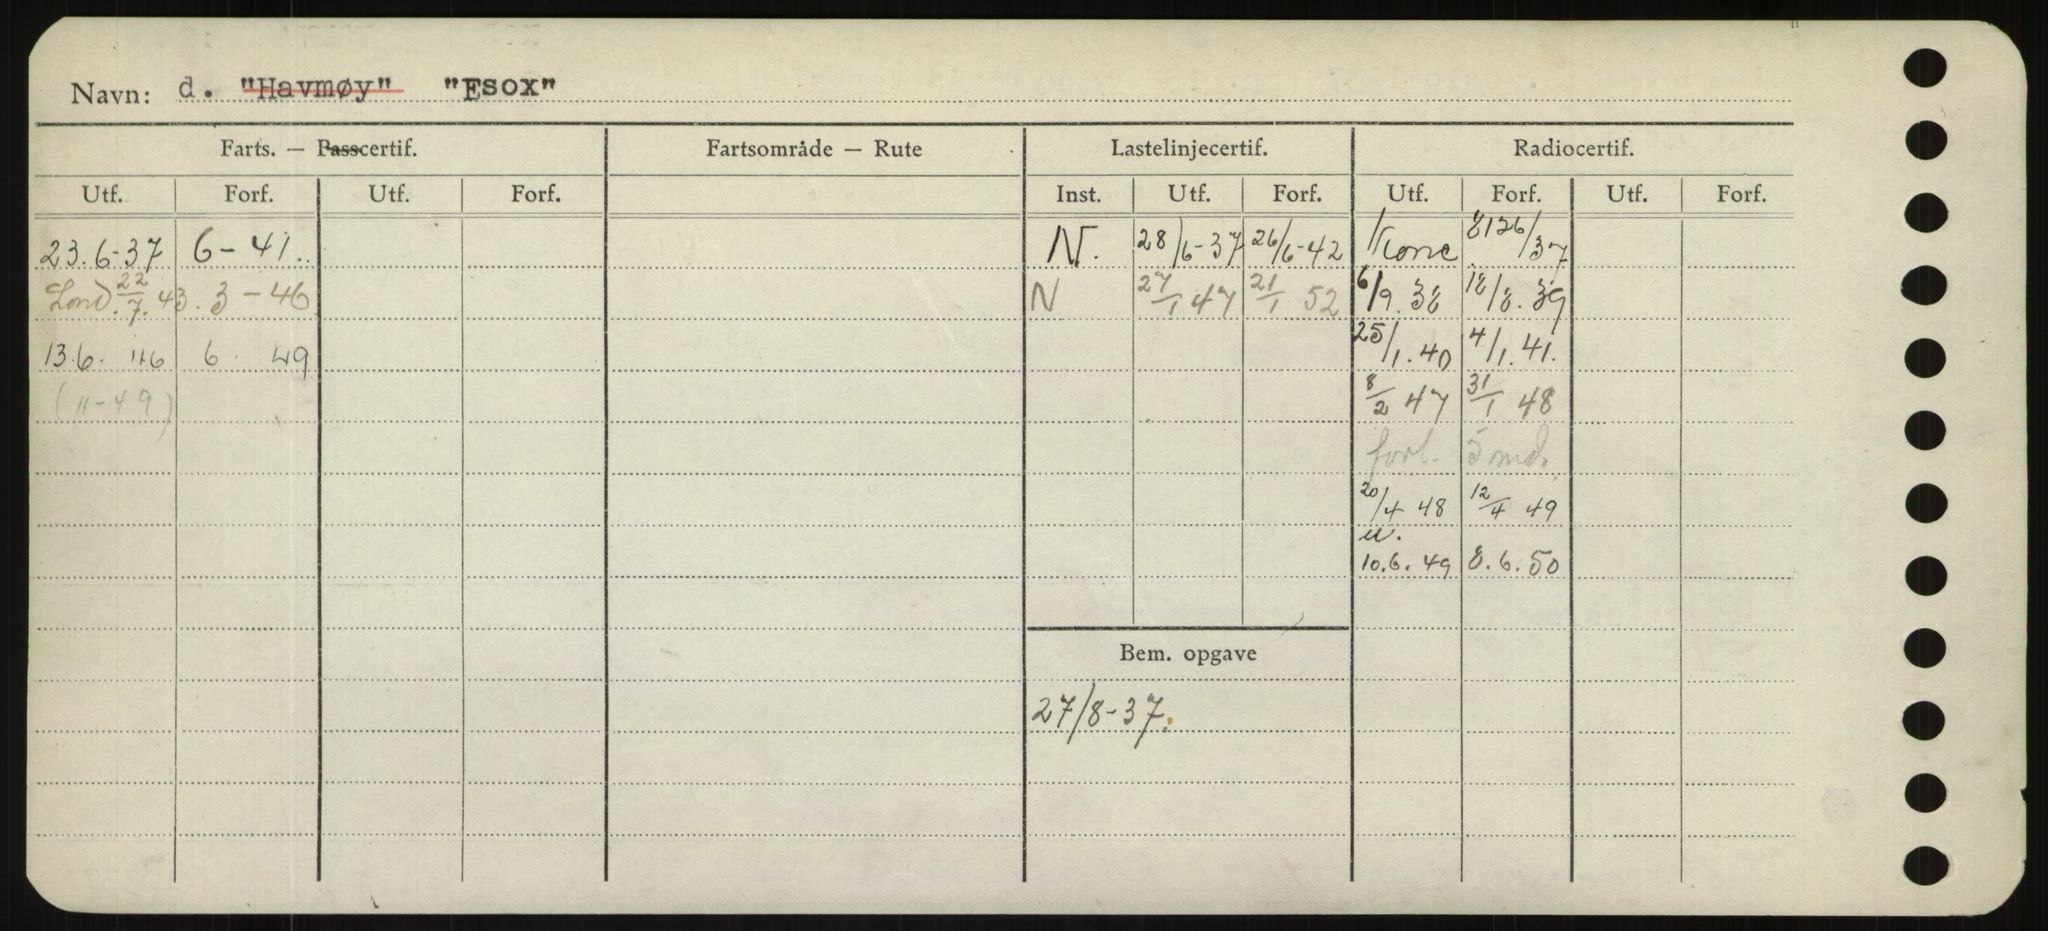 Navn: d. "Havmøy" "Esox"
Farts. — Passcertif. Fartsområde — Rute Lastelinjecertif. Radiocertif.
Utf. Forf. Utf. Forf. Inst. Utf. Forf. Utf. Forf. Utf. Forf.
23.6-37 6-41. N. 28/6-37 26/6-42 /37
Lond. 22/7.43. 3-46 N 27/1 47 21/1 52 6/9.38 18/8.39
13.6. 46 6. 49 25/1.40 4/1.41.
(11-49) 8/2 47 31/1 48
forl. 5 mnd.
20/4 48 12/4 49
u.
10.6.49 8.6.50
Bem. opgave
27/8-37.